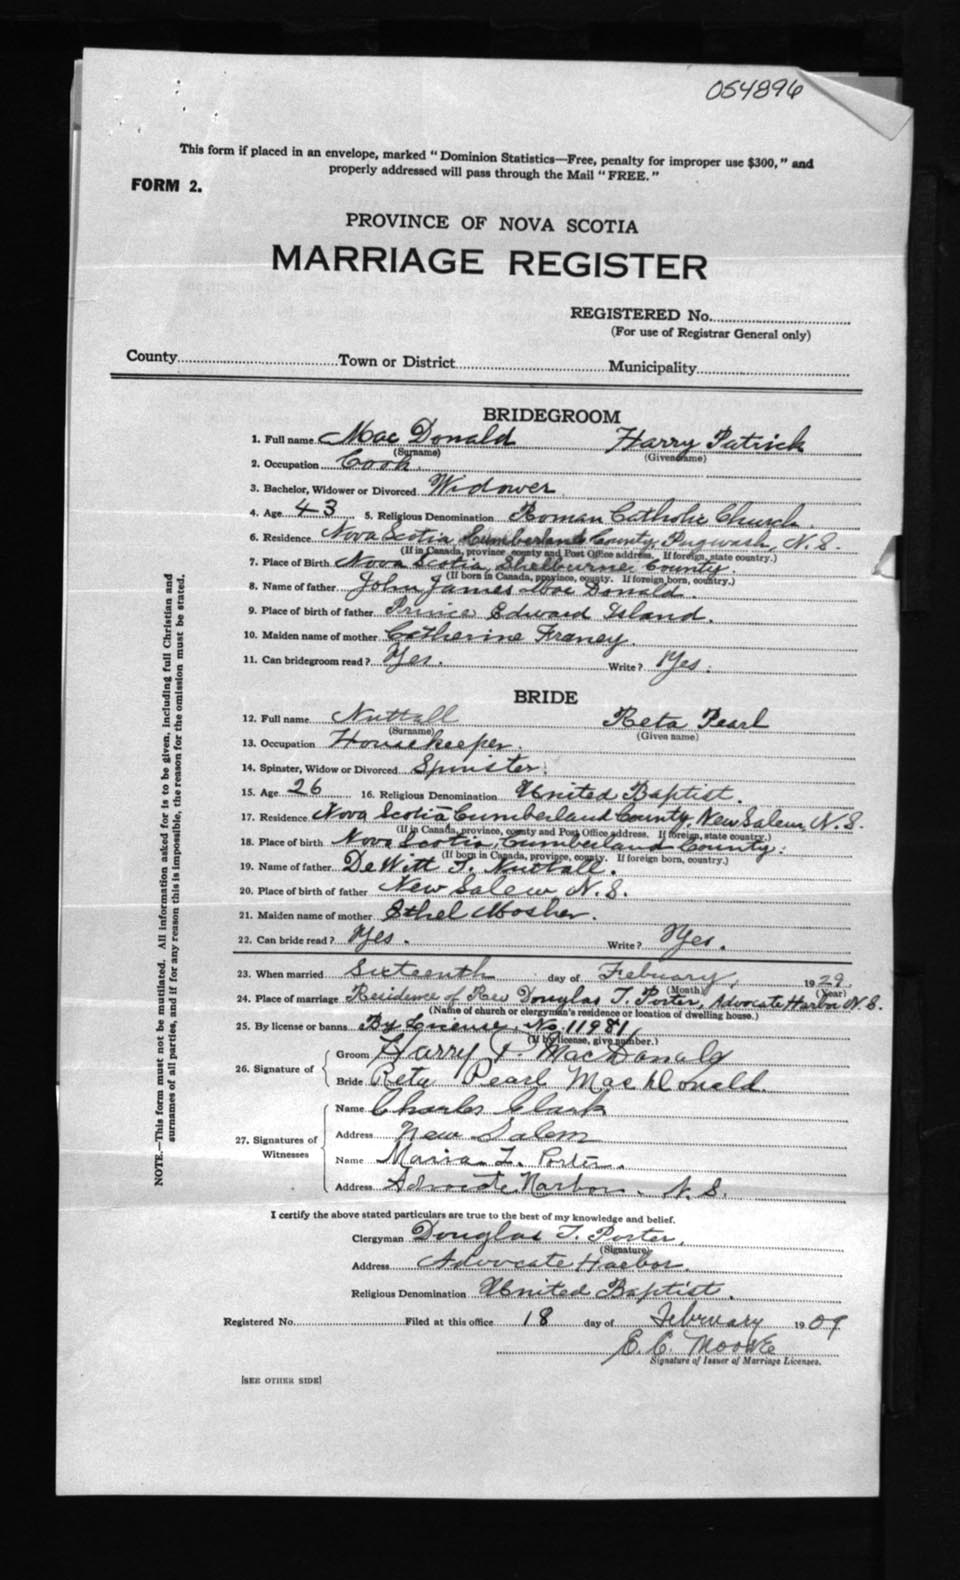 054896
This form if placed in an envelope, marked "Dominion Statistics—Free, penalty for improper use $300," and
properly addressed will pass through the Mail "FREE."
FORM 2.
PROVINCE OF NOVA SCOTIA
MARRIAGE REGISTER
REGISTERED No.
(For use of Registrar General only)
County Town or District Municipality
BRIDEGROOM
1. Full name Mac Donald Harry Patrick
(Surname) (Given name)
2. Occupation Cook.
3. Bachelor, Widower or Divorced Widower
4. Age 43 5. Religious Denomination Roman Catholic Church.
6. Residence Nova Scotia Cumberland County, Pugwash, N.S.
(If in Canada, province, county and Post Office address. If foreign, state country.)
7. Place of Birth Nova Scotia, Shelburne County.
(If born in Canada, province, county. If foreign born, country.)
8. Name of father John James Mac Donald.
9. Place of birth of father Prince Edward Island.
10. Maiden name of mother Catherine Franey.
11. Can bridegroom read? Yes. Write? Yes.
BRIDE
12. Full name Nuttall Reta Pearl
(Surname) (Given name)
13. Occupation Housekeeper.
14. Spinster, Widow or Divorced Spinster.
15. Age 26 16. Religious Denomination United Baptist.
17. Residence Nova Scotia Cumberland County, New Salem, N.S.
(If in Canada, province, county and Post Office address. If foreign, state country.)
18. Place of birth Nova Scotia, Cumberland County.
(If born in Canada, province, county. If foreign born, country.)
19. Name of father DeWitt T. Nuttall.
20. Place of birth of father New Salem, N.S.
21. Maiden name of mother Ethel Mosher.
22. Can bride read? Yes. Write? Yes.
23. When married Sixteenth day of February, 1929.
(Month) (Year)
24. Place of marriage Residence of Rev Douglas T. Porter, Advocate Harbor N.S.
(Name of church or clergyman's residence or location of dwelling house.)
25. By license or banns By License, No. 11981
(If by license, give number.)
26. Signature of Groom Harry P. MacDonald
Bride Reta Pearl MacDonald.
27. Signatures of Witnesses Name Charles Clark
Address New Salem
Name Maria L. Porter.
Address Advocate Harbor. N.S.
I certify the above stated particulars are true to the best of my knowledge and belief.
Clergyman Douglas T. Porter.
(Signature)
Address Advocate Harbor.
Religious Denomination United Baptist.
Registered No. Filed at this office 18 day of February 1909
E.C. Moore
Signature of Issuer of Marriage Licenses.
[SEE OTHER SIDE]
NOTE.—This form must not be mutilated. All information asked for is to be given, including full Christian and
surnames of all parties, and if for any reason this is impossible, the reason for the omission must be stated.